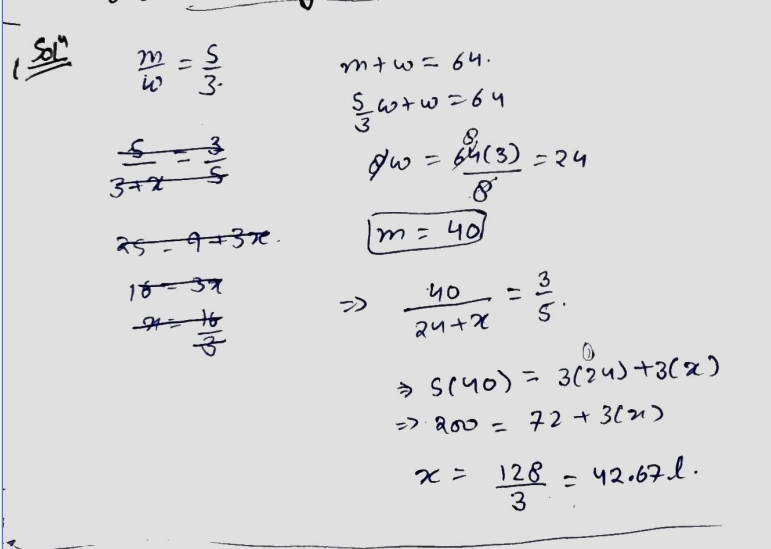 Solⁿ
m/w = 5/3.
5/(3+x) = 3/5
25 = 9+3x.
16 = 3x
x = 16/3
m+w = 64.
5/3 w+w = 64
8w = 64(3)/8 = 24
m = 40
=> 40/(24+x) = 3/5.
=> 5(40) = 3(24)+3(x)
=> 200 = 72 + 3(x)
x = 128/3 = 42.67 l.